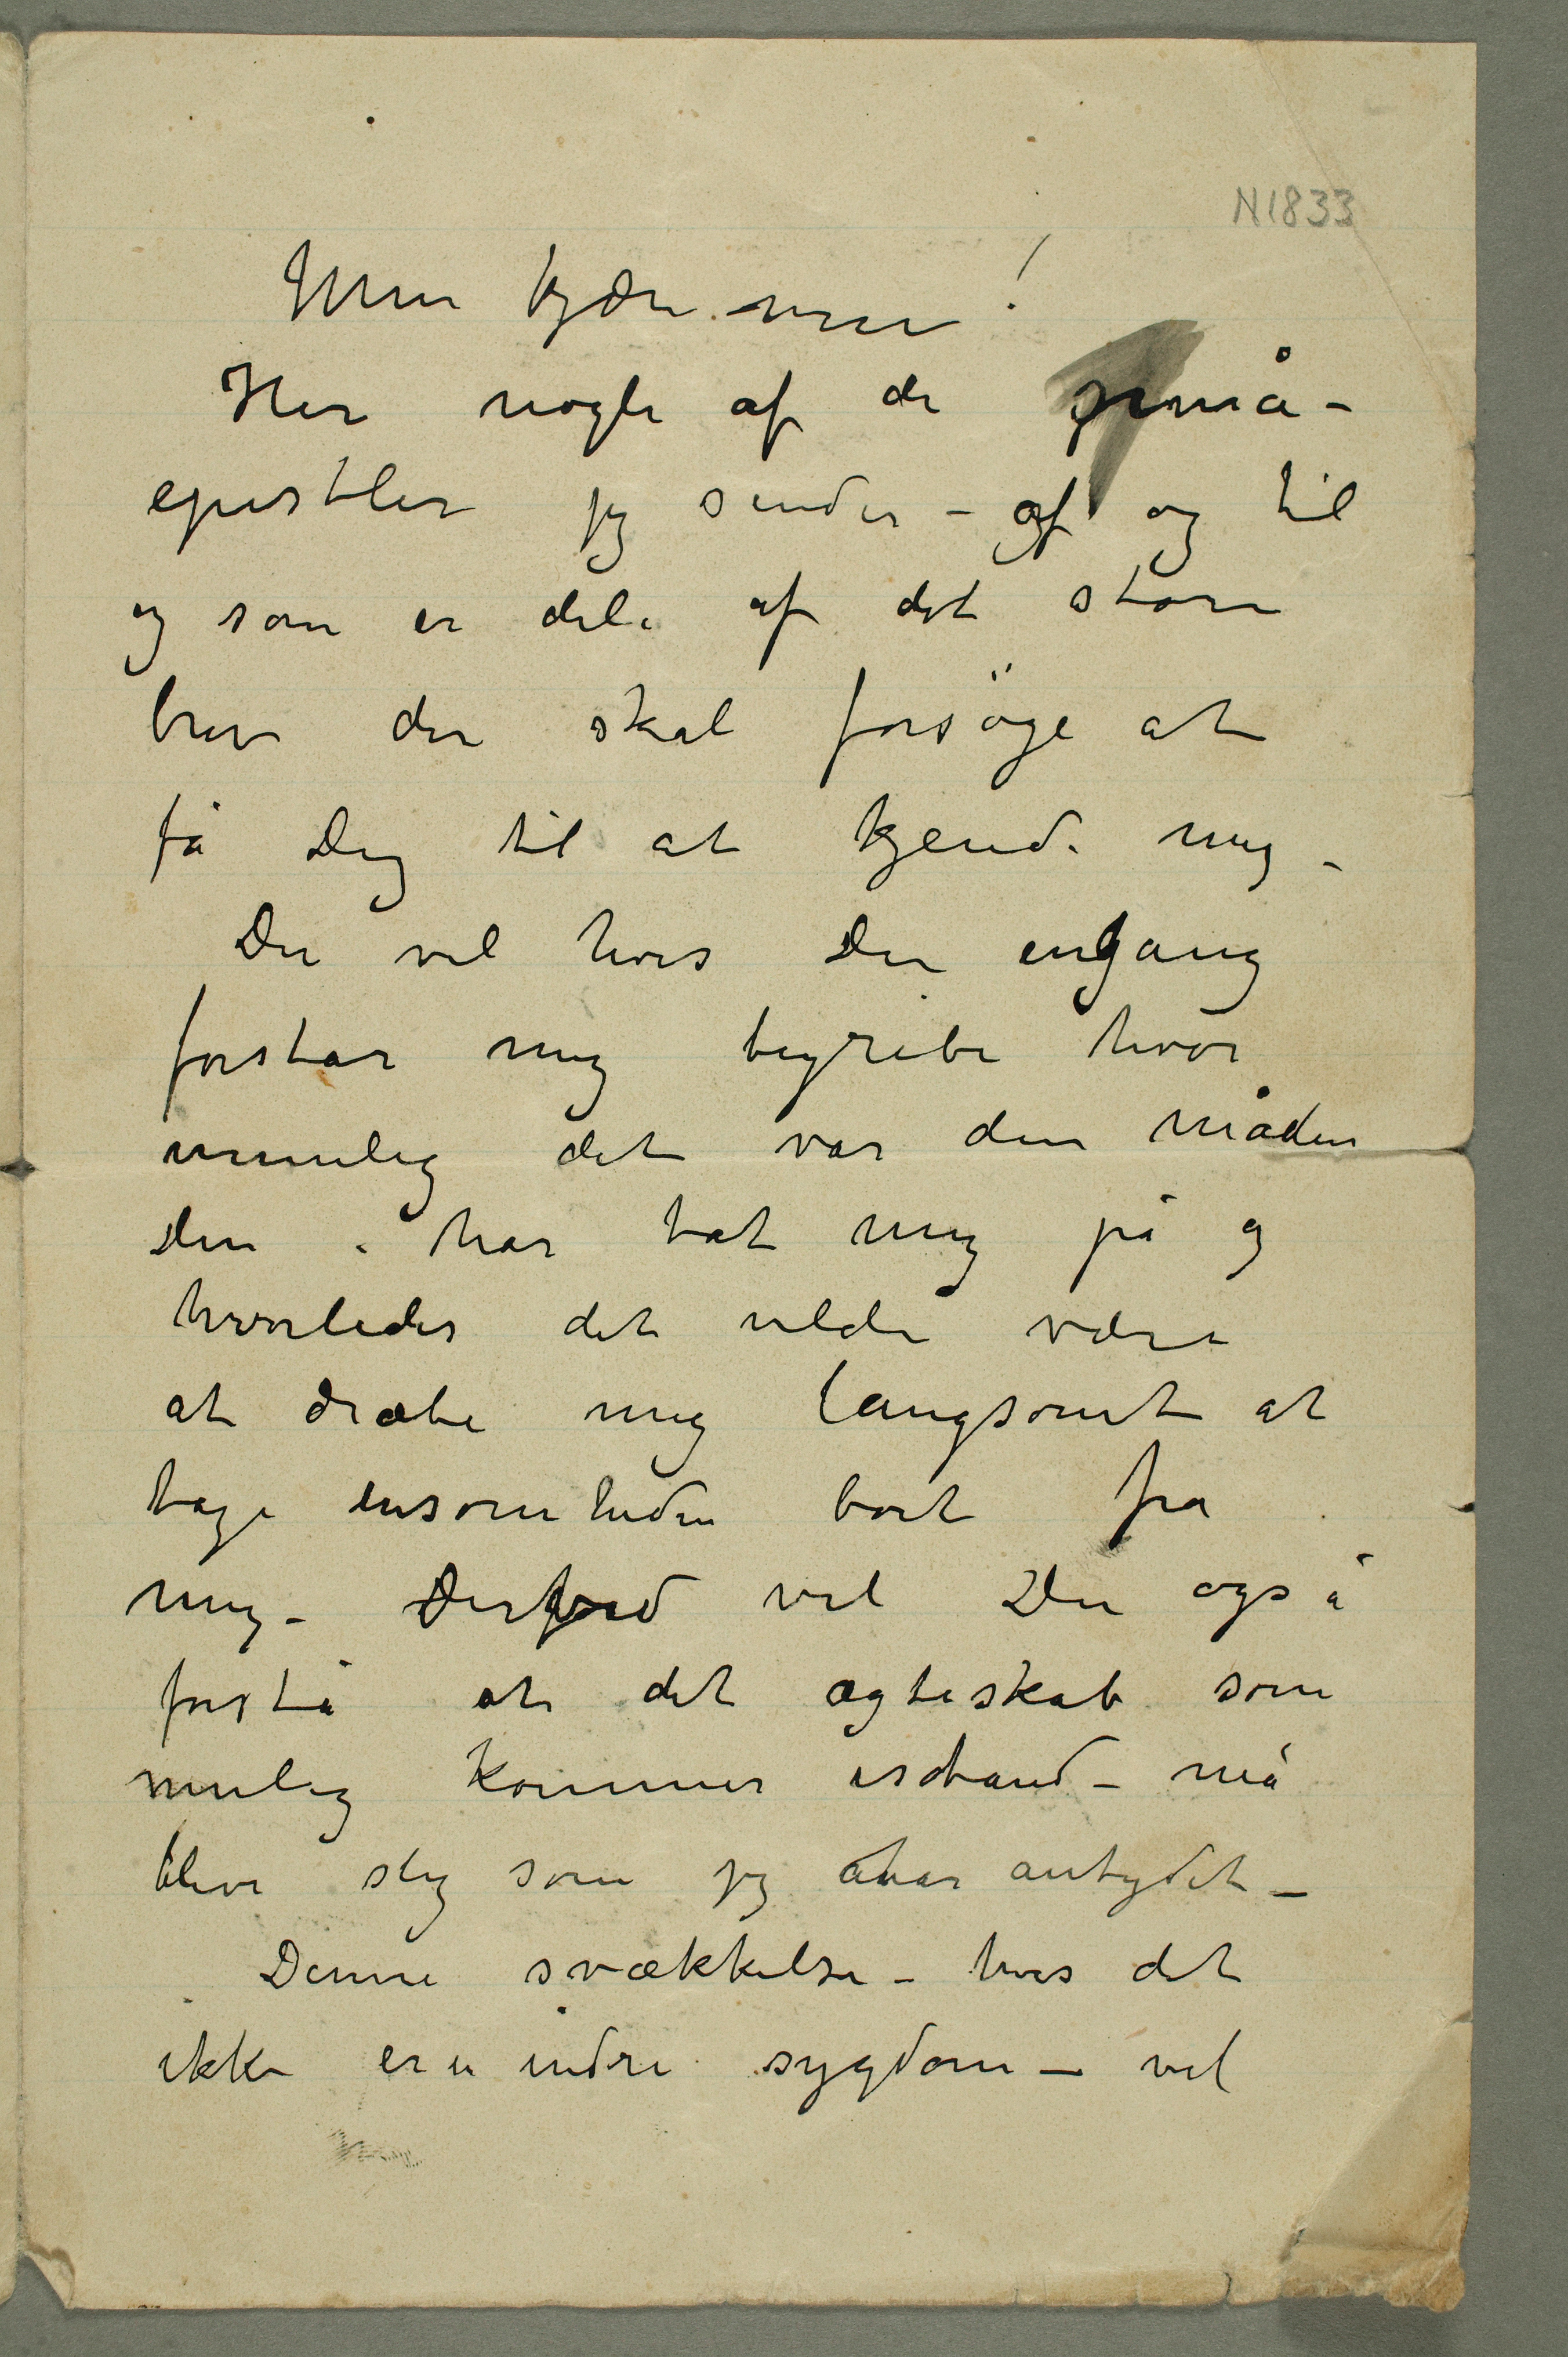 N1833
Min kjære ven!
Her nogle af de små-
epistler jeg sender – af og til
og som er dele af det store
brev der skal forsöge at
få Dig til at kjende mig –
Du vil hvis Du engang
forstår mig begribe hvor
umulig det var den måden
Du har tat mig på og
hvorledes det vilde være
at dræbe mig langsomt at
tage ensomheden bort fra
mig – Derfor vil Du også
forstå at det ægteskab som
mulig kommer istand – må
blive slig som jeg har antydet –
Denne svækkelse – hvis det
ikke er en indre sygdom – vil